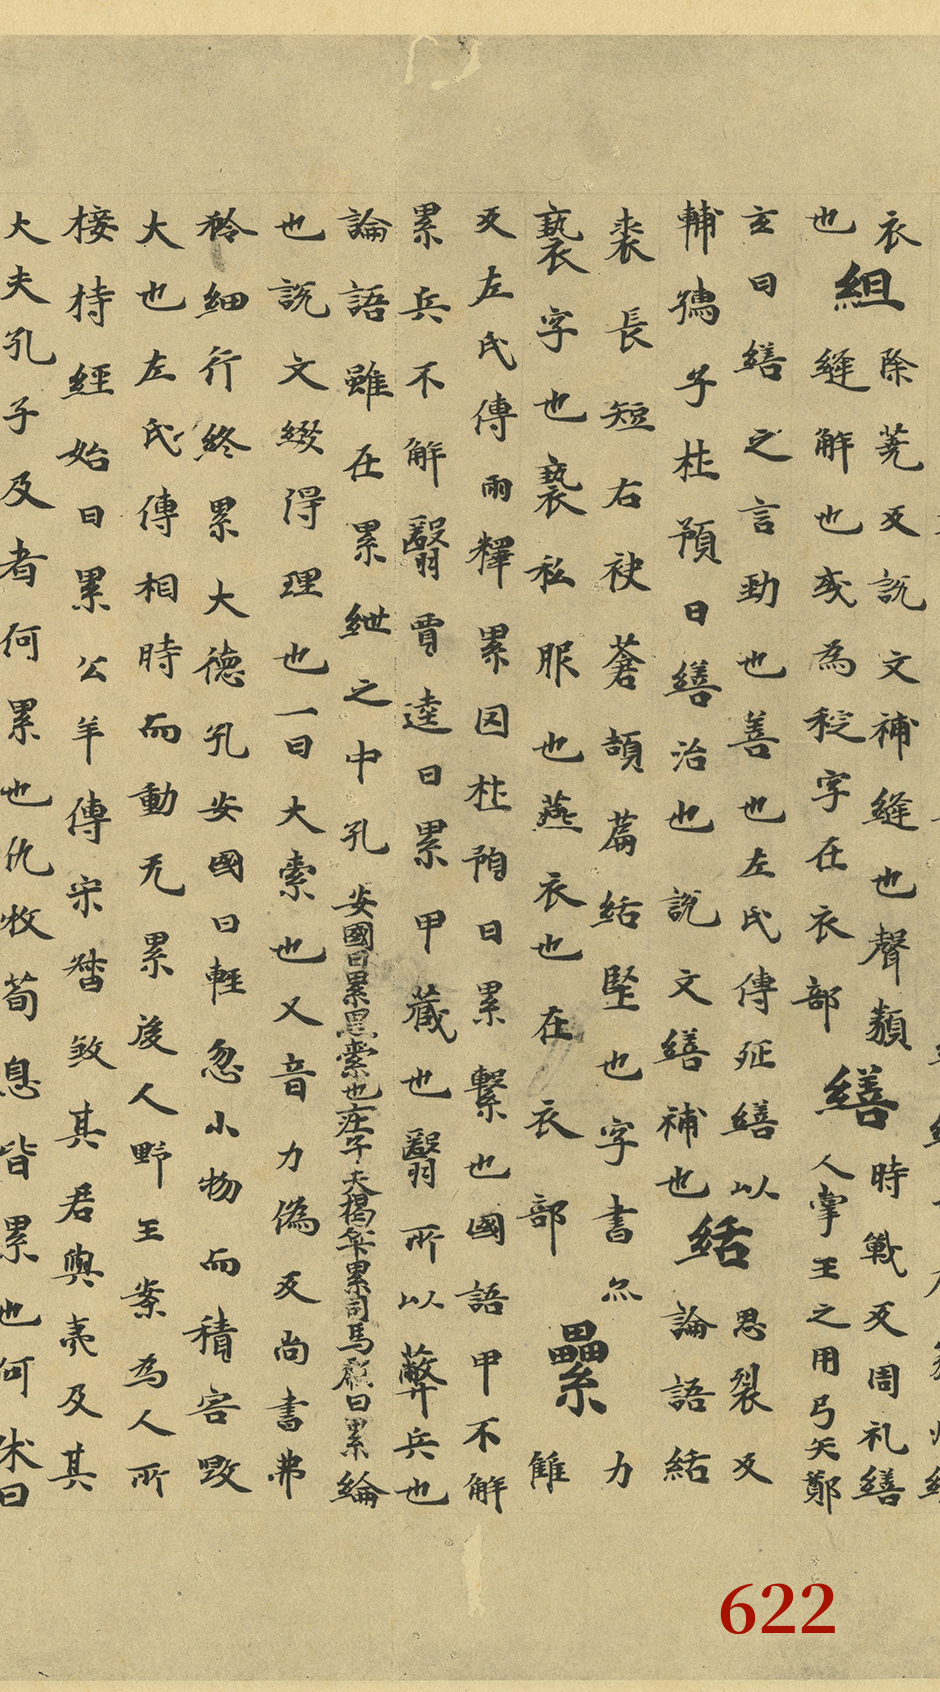 衣除蕘反說文補縫也聲類繕時戰反周礼繕
也組縫解也或為䋎字在衣部人掌王之用弓矢鄭
玄曰繕之言勁也善也左氏傳征繕以
輔孺子杜預曰繕治也說文繕補也絬思裂反論語絬
裘長短右袂蒼頡篇絬堅也字書尒
褻字也褻私服也燕衣也在衣部纍力雖
反左氏傳兩釋累囚杜預曰累繫也國語甲不解
累兵不解翳賈逵曰累甲藏也翳所以弊兵也
論語雖在累紲之中孔安國曰累黑索也庄子夫揭竿累司馬彪曰累綸
也說文綴得理也一曰大索也又音力偽反尚書弗
矜細行終累大德孔安國曰輕忽小物而積害毀
大也左氏傳相時而動无累後人野王案為人所
椄持經始曰累公羊傳宋督弒其君與夷及其
大夫孔子及者何累也仇牧荀息皆累也何休曰
622